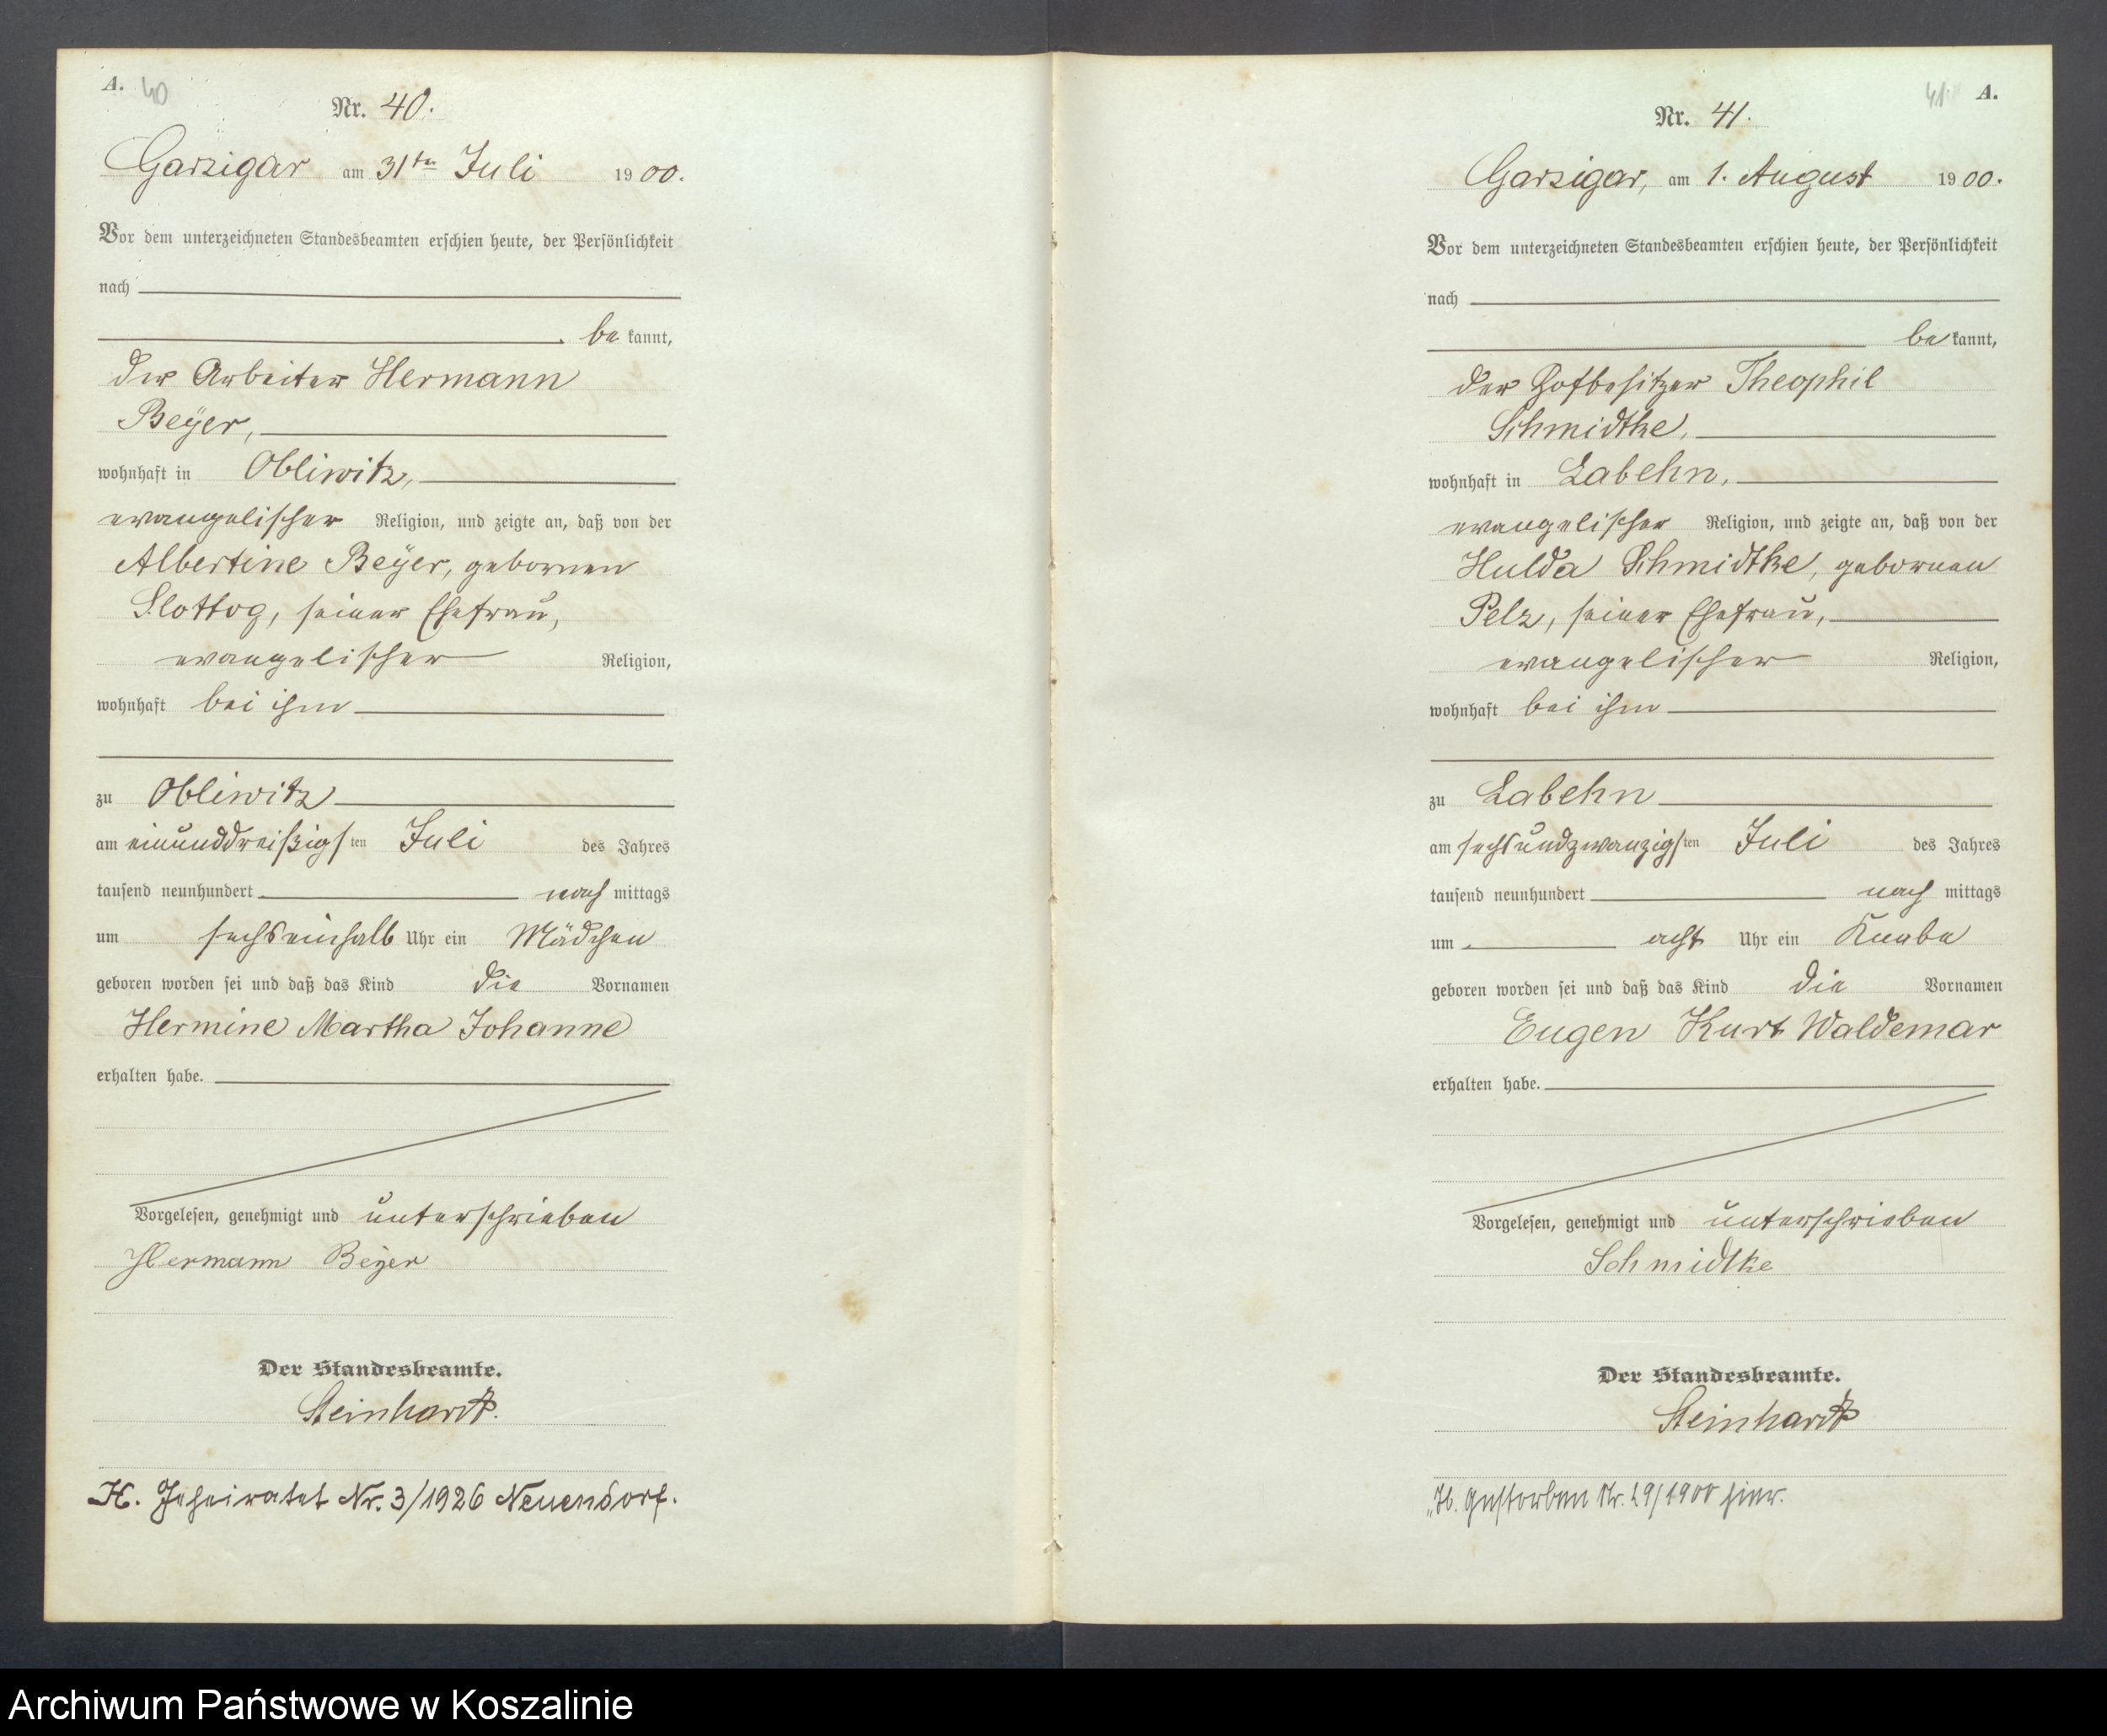 A. 40
Nr. 40.
Garzigar am 31ten Juli 1900.
Vor dem unterzeichneten Standesbeamten erschien heute, der Persönlichkeit
nach
bekannt,
der Arbeiter Hermann
Beÿer,
wohnhaft in Obliwitz,
evangelischer Religion, und zeigte an, daß von der
Albertine Beÿer, gebornen
Slottog, seiner Ehefrau,
evangelischer Religion,
wohnhaft bei ihm
zu Obliwitz
am einunddreißigsten Juli des Jahres
tausend neunhundert nachmittags
um sechseinhalb Uhr ein Mädchen
geboren worden sei und daß das Kind die Vornamen
Hermine Martha Johanne
erhalten habe.
Vorgelesen, genehmigt und unterschrieben
Hermann Beÿer
Der Standesbeamte.
Steinhardt.
H. Geheiratet Nr. 3/1926 Neuendorf.
41 A.
Nr. 41.
Garzigar, am 1. August 1900.
Vor dem unterzeichneten Standesbeamten erschien heute, der Persönlichkeit
nach
bekannt,
der Hofbesitzer Theophil
Schmidtke,
wohnhaft in Labehn,
evangelischer Religion, und zeigte an, daß von der
Hulda Schmidtke, gebornen
Pelz, seiner Ehefrau,
evangelischer Religion,
wohnhaft bei ihm
zu Labehn
am sechsundzwanzigsten Juli des Jahres
tausend neunhundert nachmittags
um acht Uhr ein Knabe
geboren worden sei und daß das Kind die Vornamen
Eugen Kurt Waldemar
erhalten habe.
Vorgelesen, genehmigt und unterschrieben
Schmidtke
Der Standesbeamte.
Steinhardt
gestorben Nr. 29/1900 hier.
Archiwum Państwowe w Koszalinie